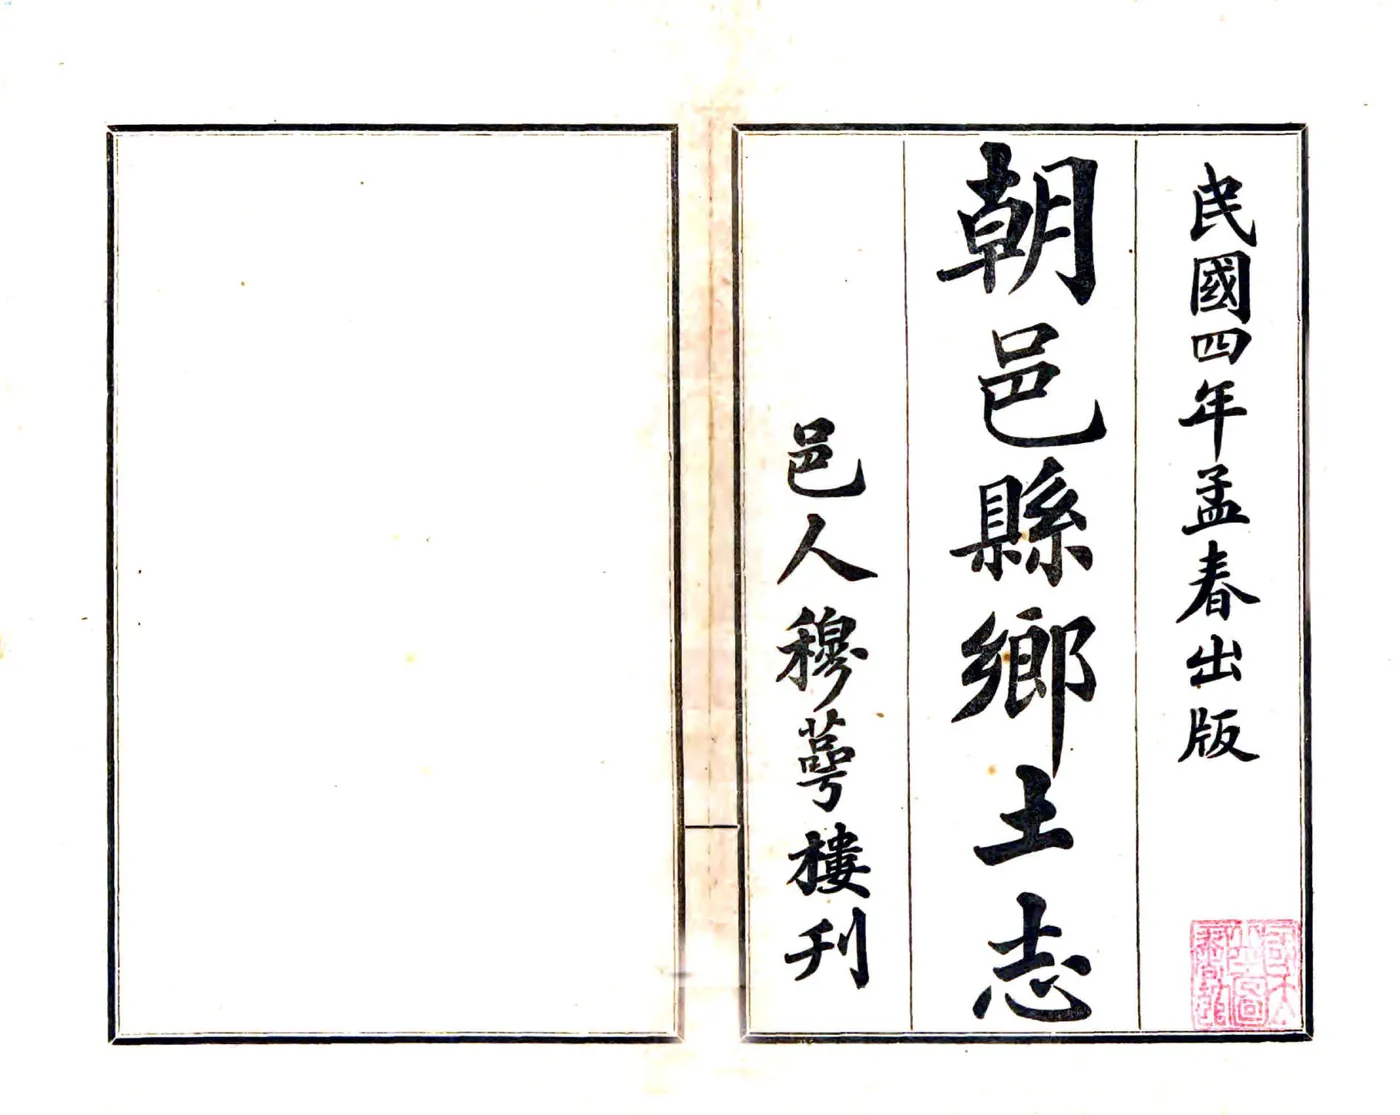 民國四年孟春出版
朝邑縣鄉土志
邑人穆蕚樓刋